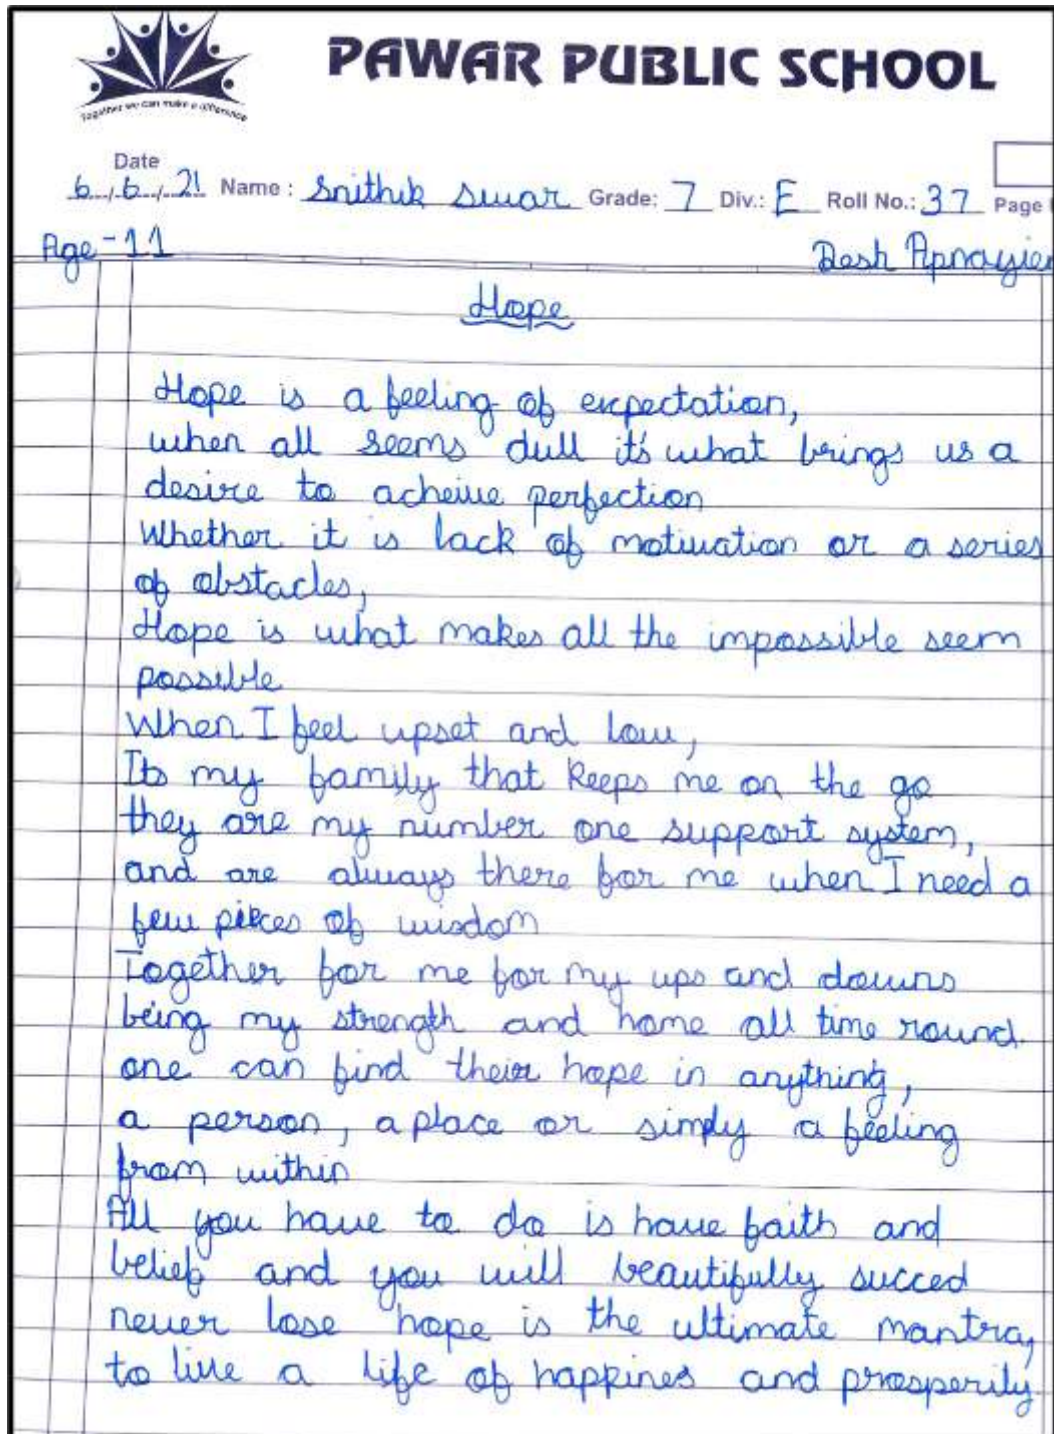 Together we can make a difference
PAWAR PUBLIC SCHOOL
Date
6/6/21 Name : Snithik Suvar Grade: 7 Div.: E Roll No.: 37 Page
Age - 11 Desh Apnayien
Hope
Hope is a feeling of expectation,
when all seems dull it's what brings us a
desire to acheive perfection
Whether it is lack of motivation or a series
of obstacles,
Hope is what makes all the impossible seem
possible
When I feel upset and low,
Its my family that keeps me on the go
they are my number one support system,
and are always there for me when I need a
few pieces of wisdom
Together for me for my ups and downs
being my strength and home all time round.
one can find their hope in anything,
a person, a place or simply a feeling
from within
All you have to do is have faith and
belief and you will beautifully succed
never lose hope is the ultimate mantra,
to live a life of happines and prosperity.